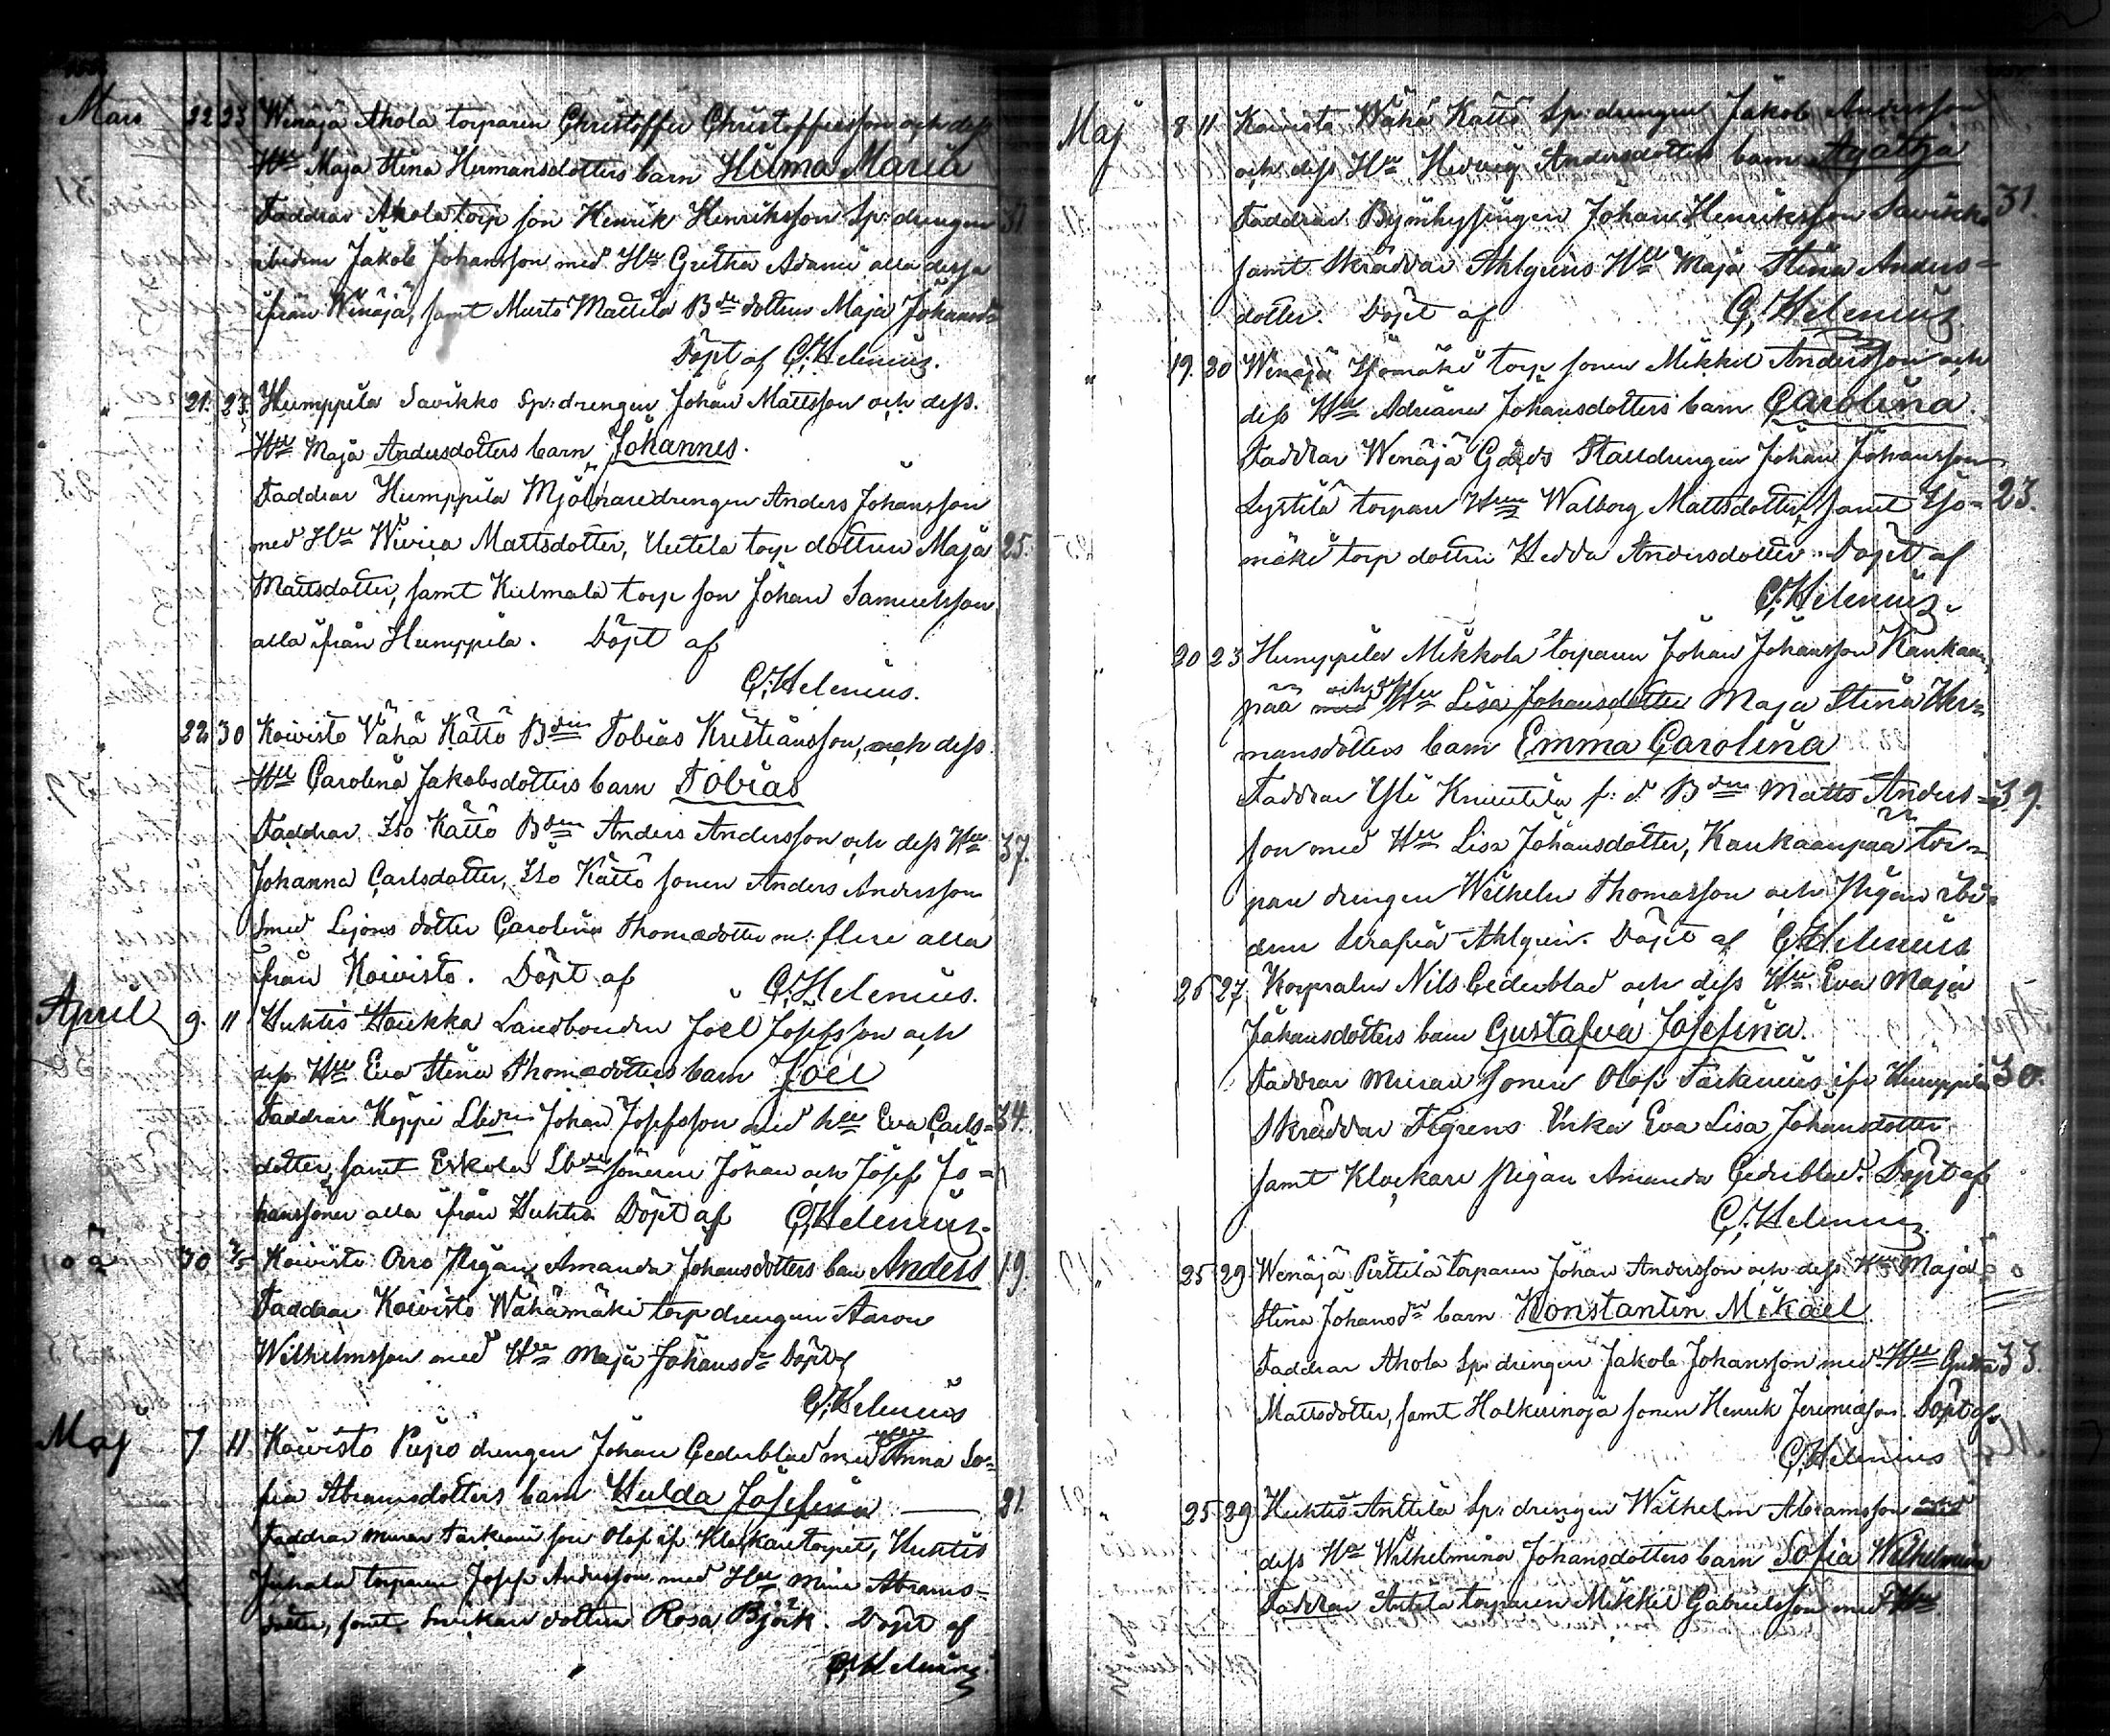 Mars 22 23 Winäjä Ahola torparen Christoffer Christoffersson och dess
Hu Maja Stina Hermansdotters barn Hilma Maria
Faddrar Ahola torp son Henrik Henriksson Sp: drengen 31
ibidem Jakob Johansson med Hu Gretha Adami alla dessa
ifrån Winäjä, samt Murto Mattila Bde dottren Maja Johansd
Döpt af C. Helenius.
" 21. 23. Humppila Savikko Sp: drengen Johan Mattsson och dess
Hu Maja Andersdotters barn Johannes.
Faddrar Humppila Mjölnaredrengen Anders Johansson
med Hu Wivica Mattsdotter, Uutela torp dottren Maja 25.
Mattsdotter, samt Kulmala torp son Johan Samuelsson
alla ifrån Humppila. Döpt af
C. Helenius.
" 22 30 Koivisto Vähä Kättö Bden Tobias Kristiansson, och dess
Hu Carolina Jakobsdotters barn Tobias
Faddrar Iso Kättö Bden Anders Andersson och dess Hu 37.
Johanna Carlsdotter, Iso Kättö sonen Anders Andersson
Smed Lejons dotter Carolina Thomædotter m: flere alla
från Koivisto. Döpt af C. Helenius.
April 9. 11 Huhtis Haukka Landbonden Joel Josefsson och
dess Hu Eva Stina Thomædotters barn Joel
Faddrar Keppi Lbden Johan Josefsson med hu Eva Carls= 34.
dotter, samt Erkola Lbde sönerne Johan och Josef Jo=
hanssöner alla ifrån Huhtis Döpt af C. Helenius.
o ä 30 Koivisto Orro Pigan Amanda Johansdotters barn Anders 19.
Faddrar Koivisto Wähämäki torp drengen Aaron
Wilhelmsson med Hu Maja Johansdr Döpt af
C. Helenius
Maj 7 11 Koivisto Piipo drengen Johan Cederblad med Anna So=
fia Abramsdotters barn Hulda Josefina 21.
Faddrar murar Tarkiani son Olof if. Klockaretorpet, Huhtis
Juhala torparen Josef Andersson med Hu Mina Abrams=
dotter, samt dottren Rosa Björk. Döpt af
C. Helenius.
Maj 8 11 Koivisto Wähä Kättö Sp: drengen Jakob Andersson
och dess Hu Hedvig Andersdotters barn Agatha
Faddrar Bymhysingen Johan Henriksson Savikko 31
samt Skräddar Ahlgrens Hu Maja Stina Anders=
dotter. Döpt af C. Helenius
" 19. 20 Winäjä Isomäki torp sonen Mikkel Andersson och
dess Hu Adriana Johansdotters barn Carolina
Faddrar Winäjä Gårds Stalldrengen Johan Johansson
Lystilä torpare Hun Walborg Mattsdotter, samt Iso= 23.
mäki torp dottren Hedda Andersdotter. Döpt af
C. Helenius.
" 20 23 Humppila Mikkola torparen Johan Johansson Kankaan=
pää med och dess Hu Lisa Johansdotter Maja Stina Her=
mansdotters barn Emma Carolina
Faddrar Yli Knuutila f: d Bden Matts Anders= 39.
son med Hu Lisa Johansdotter, Kankaanpää tor=
pare drengen Wilhelm Thomasson och Pigan ibi=
dem Serafia Ahlgren. Döpt af C. Helenius
" 26 27 Korpralen Nils Cederblad och dess Hu Eva Maja
Johansdotters barn Gustafva Josefina.
Faddrar Murare sonen Olof Tarkinius ifr Humppila 30.
Skräddar Flgrens Enka Eva Lisa Johansdotter
samt Klockare Pigan Amanda Cederblad. Döpt af
C. Helenius
" 25 29 Winäjä Pirttilä torparen Johan Andersson och dess Hu Maja
Stina Johansdr barn Konstantin Mikael
Faddrar Ahola Sp: drengen Jakob Johansson med Hu Gretha 33.
Mattsdotter, samt Halkiinoja sonen Henrik Jeremiasson. Döpt af
C. Helenius
" 25 29 Huhtis Anttila Sp: drengen Wilhelm Abramsson och
dess Hu Wilhelmina Johansdotters barn Sofia Wilhelmina
Faddrar Antila torparen Mikkel Gabrielsson med Hu